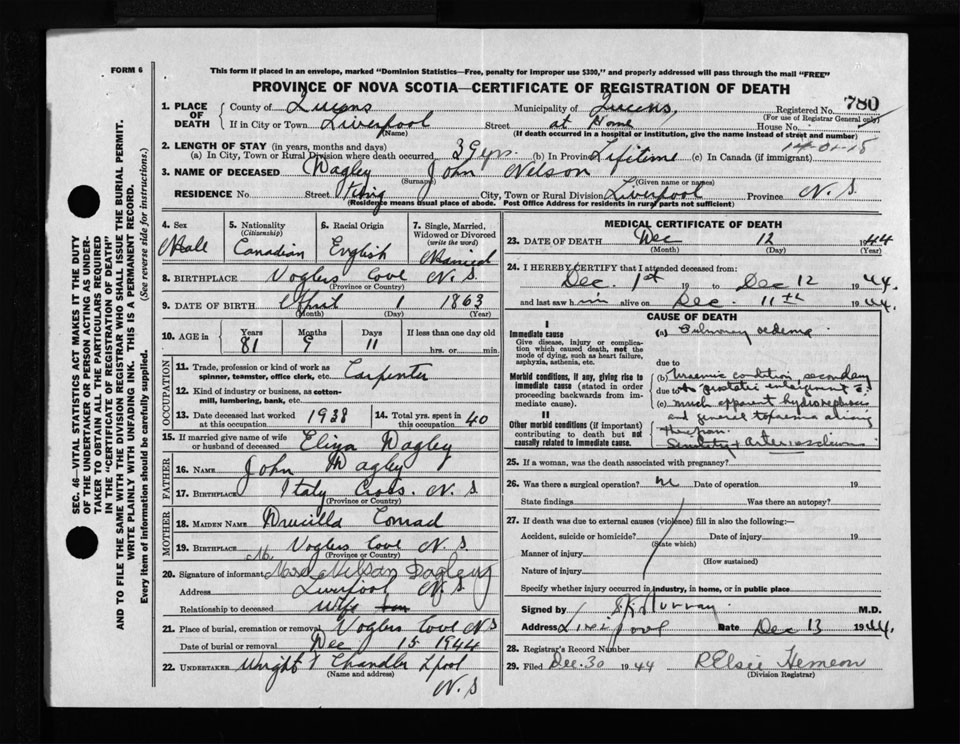 FORM 6
This form if placed in an envelope, marked "Dominion Statistics—Free, penalty for improper use $300," and properly addressed will pass through the mail "FREE"
PROVINCE OF NOVA SCOTIA—CERTIFICATE OF REGISTRATION OF DEATH
1. PLACE OF DEATH County of Queens Municipality of Queens, Registered No. 780
(For use of Registrar General only)
If in City or Town Liverpool Street at Home House No.
(Name) (If death occurred in a hospital or institution, give the name instead of street and number)
2. LENGTH OF STAY (in years, months and days) 14-01-15
(a) In City, Town or Rural Division where death occurred 39 yrs. (b) In Province Lifetime (c) In Canada (if immigrant)
3. NAME OF DECEASED Dagley John Nelson
(Surname) (Given name or names)
RESIDENCE No. Street King City, Town or Rural Division Liverpool Province N.S.
(Residence means usual place of abode. Post Office Address for residents in rural parts not sufficient)
4. Sex Male
5. Nationality (Citizenship) Canadian
6. Racial Origin English
7. Single, Married, Widowed or Divorced (write the word) Married
8. BIRTHPLACE Voglers Cove N.S
(Province or Country)
9. DATE OF BIRTH April 1 1863
(Month) (Day) (Year)
10. AGE in Years Months Days If less than one day old
81 9 11 hrs. or min.
OCCUPATION
11. Trade, profession or kind of work as spinner, teamster, office clerk, etc. Carpenter
12. Kind of industry or business, as cotton-mill, lumbering, bank, etc.
13. Date deceased last worked at this occupation 1938 14. Total yrs. spent in this occupation 40
15. If married give name of wife or husband of deceased Eliza Dagley
FATHER
16. NAME John Dagley
17. BIRTHPLACE Italy Cross. N.S
(Province or Country)
MOTHER
18. MAIDEN NAME Drucilla Conrad
19. BIRTHPLACE Voglers Cove N.S
(Province or Country)
20. Signature of informant Nelson Dagley
Address Liverpool N.S
Relationship to deceased Wife son
21. Place of burial, cremation or removal Voglers Cove N S
Date of burial or removal Dec 15 1944
22. UNDERTAKER Wright & Chandler Lpool
(Name and address)
N.S
MEDICAL CERTIFICATE OF DEATH
23. DATE OF DEATH Dec 12 1944
(Month) (Day) (Year)
24. I HEREBY CERTIFY that I attended deceased from:
Dec. 1st 19 to Dec 12 1944.
and last saw him alive on Dec. 11th 1944.
CAUSE OF DEATH
I
Immediate cause
Give disease, injury or complication which caused death, not the mode of dying, such as heart failure, asphyxia, asthenia, etc.
(a) Pulmonary oedema
due to
Morbid conditions, if any, giving rise to immediate cause (stated in order proceeding backwards from immediate cause).
(b) Uraemic condition secondary
due to to prostatic enlargement
(c) much apparent hydronephrosis
and general toxaemia
II
Other morbid conditions (if important) contributing to death but not causally related to immediate cause.
Senility & Arteriosclerosis
25. If a woman, was the death associated with pregnancy?
26. Was there a surgical operation? no Date of operation 19
State findings Was there an autopsy?
27. If death was due to external causes (violence) fill in also the following:—
Accident, suicide or homicide? Date of injury 19
(State which)
Manner of injury
(How sustained)
Nature of injury
Specify whether injury occurred in industry, in home, or in public place
Signed by Murray M.D.
Address Liverpool Date Dec 13 1944.
28. Registrar's Record Number
29. Filed Dec. 30 1944 R Elsie Hemeon
(Division Registrar)
SEC. 46—VITAL STATISTICS ACT MAKES IT THE DUTY
OF THE UNDERTAKER OR PERSON ACTING AS UNDER-
TAKER TO OBTAIN ALL THE PARTICULARS REQUIRED
IN THE "CERTIFICATE OF REGISTRATION OF DEATH"
AND TO FILE THE SAME WITH THE DIVISION REGISTRAR WHO SHALL ISSUE THE BURIAL PERMIT.
WRITE PLAINLY WITH UNFADING INK. THIS IS A PERMANENT RECORD.
Every item of information should be carefully supplied. (See reverse side for instructions.)